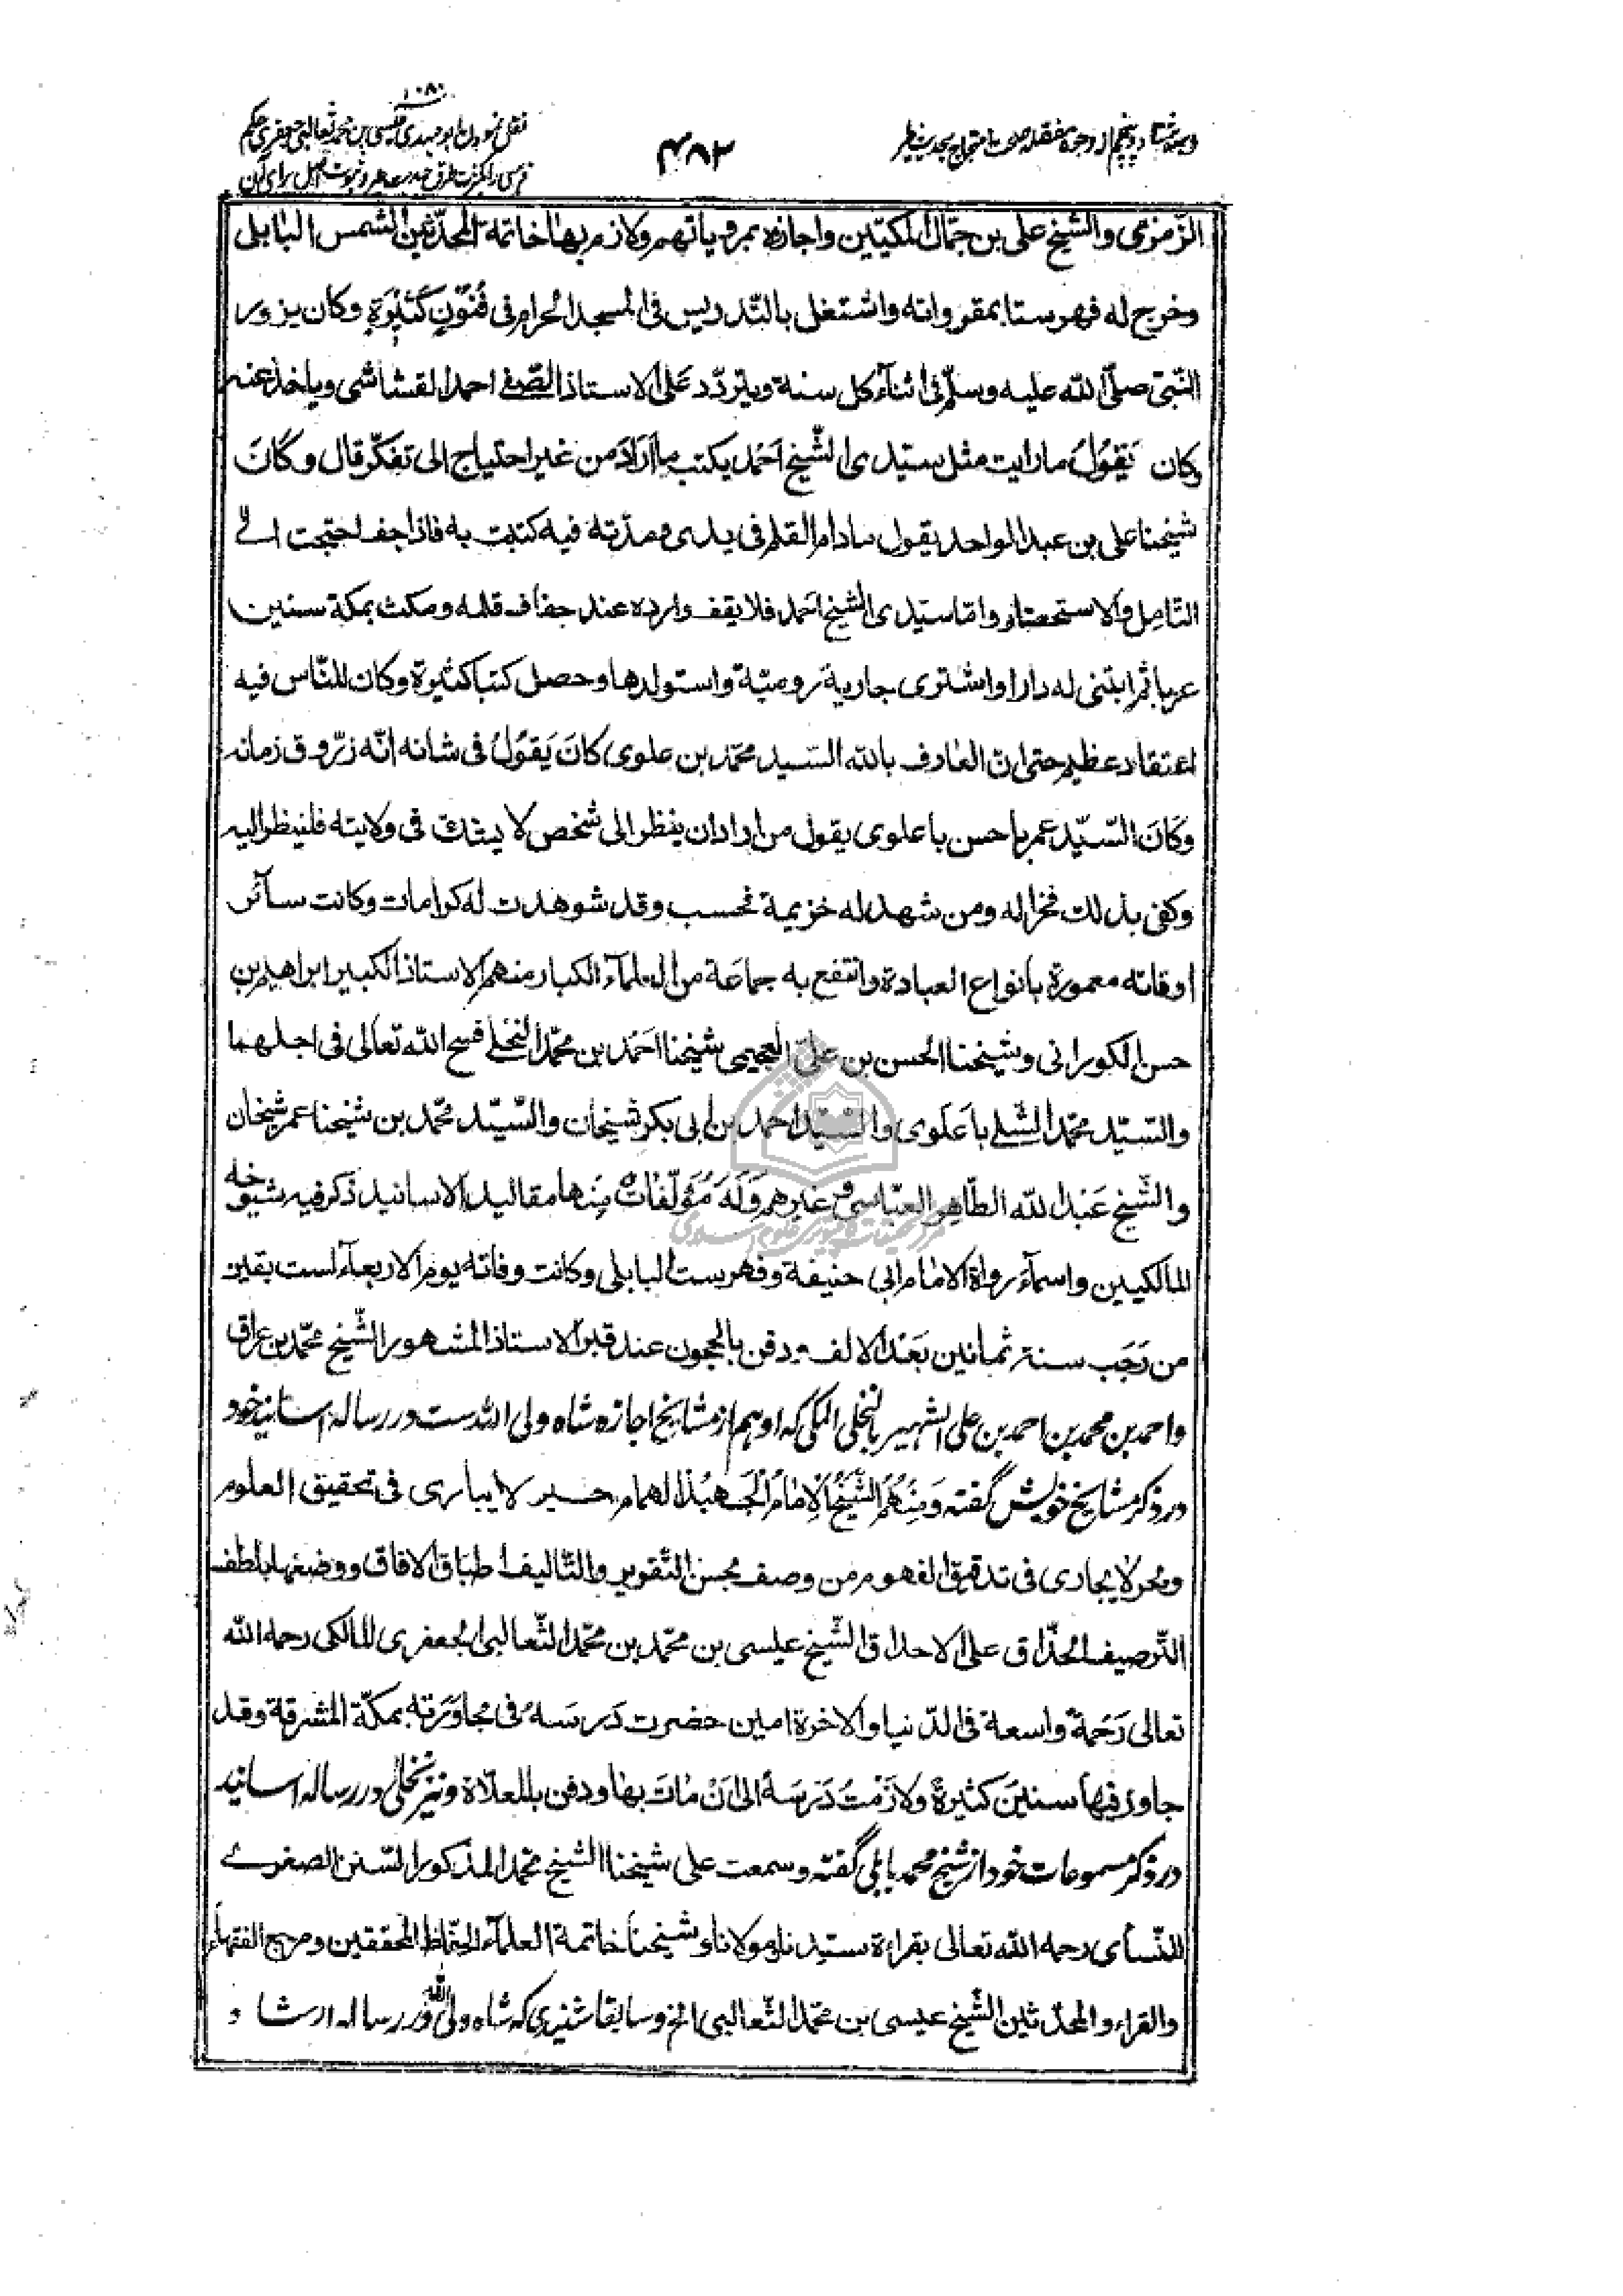 ۱۰۸۰
وجه هشتاد و پنجم از وجوه مفصله صحت احتجاج بحديث طير
۴۸۲
نقل نمودن ابو مهدى عيسى بن محمد ثعالبى جعفرى حكم
كثرت طرق حديث طير و ثبوت اصل براى آن
الزّمزمى والشيخ على بن جمّال المكيّين واجازه بمروياتهم ولازم بها خاتمة المحدّثين الشمس البابلى
وخرج له فهرستا بمقرواته واشتغل بالتّدريس فى المسجد الحرام فى فُنُوْنٍ كَثِيْرَةٍ وكان يزور
النّبىّ صلّى الله عليه وسلّم فى اثنآء كل سنة ويتردّد عَلى الاستاذ الصّفى احمد القشاشى وياخذ عنه
وكان يَقُوْلُ ما رايت مثل سيّدى الشّيخ اَحْمَد يكتب ما اَرَادَ من غير احتياج الى تفكّر قال وكَانَ
شيخنا على بن عبد الواحد يقول ما دام القلم فى يدى ومدّته فيه كتبت به فاذا جف احتجت الى
التّامل والاستحضار وامّا سيّدى الشيخ احمد فلا يقف وارده عند جفاف قلمه ومكث بمكة سنين
عزبا ثم ابتنى له دارا واشترى جارية روميّة واستولدها وحصل كتبا كثيرة وكان للنّاس فيه
اعتقاد عظيم حتى ان العارف بالله السّيد محمّد بن علوى كَانَ يَقُوْلُ فى شانه انّه زرّوق زمانه
وكَانَ السّيّد عمر باحسن باعلوى يقول من اراد ان ينظر الى شخص لا يشكّ فى ولايته فلينظر اليه
وكفى بذلك فخرا له ومن شهد له خزيمة فحسب وقد شوهدت له كرامات وكانت سآئر
اوقاته معمورة بانواع العبادة وانتفع به جماعة من العلمآء الكبار منهم الاستاذ الكبير ابراهيم بن
حسن الكورانى وشيخنا الحسن بن على العجيمى شيخنا احمد بن محمّد النخلى فسح الله تعالى فى اجلهما
والسّيّد محمّد الشّلى باعَلوى والسّيّد احمد بن ابى بكر شيخان والسّيّد محمّد بن شيخنا عمر شيخان
والشّيخ عَبد الله الطّاهر العبّاسى وغيرهم وَلَهُ مُؤَلّفَاتٌ مِنها مقاليد الاسانيد ذكر فيه شيوخه
المالكيين واسمآء رواة الامام ابى حنيفة وفهرست البابلى وكانت وفاته يوم الاربعآء لست بقين
من رَجَب سنة ثمانين بَعْد الالف ودفن بالحجون عند قبر الاستاذ المشهور الشّيخ محمّد بن عراق
واحمد بن محمد بن احمد بن على الشهير بالنخلى المكى كه او هم از مشايخ اجازه شاه ولى الله ست در رساله اسانيد خود
در ذكر مشايخ خويش گفته وَمِنْهُمُ الشَّيْخُ الاِمَامُ الجَهبذ الهمام حبر لا يبارى فى تحقيق العلوم
وبحر لا يجارى فى تدقيق الفهوم من وصف بحسن التّقرير والتّاليف اطباق الافاق ووضعها بلطف
التّرصيف الحذّاق على الاحداق الشّيخ عيسى بن محمّد بن محمّد الثّعالبى الجعفرى المالكى رحمه الله
تعالى رَحمة واسعة فى الدّنيا والاخرة امين حضرت دَرسه فى مجاوَرته بمكّة المشرفة وقد
جاور فيها سنين كثيرة ولازَمْتُ دَرسه الى اَنْ مات بها ودفن بالمعلاة ونيز نخلى در رساله اسانيد
در ذكر مسموعات خود از شيخ محمد بابلى گفته وسمعت على شيخنا الشّيخ محمّد المذكور السّنن الصغرى
للنّسآى رحمه الله تعالى بقراءة سيّدنا ومولانا وشيخنا خاتمة العلمآء الحفّاظ المحققين ومرجع الفقهآء
والقراء والمحدّثين الشّيخ عيسى بن محمّد الثّعالبى الخ وسابقا شنيدى كه شاه ولى الله در رساله ارشاد
مركز تحقيقات كامپيوترى علوم اسلامى